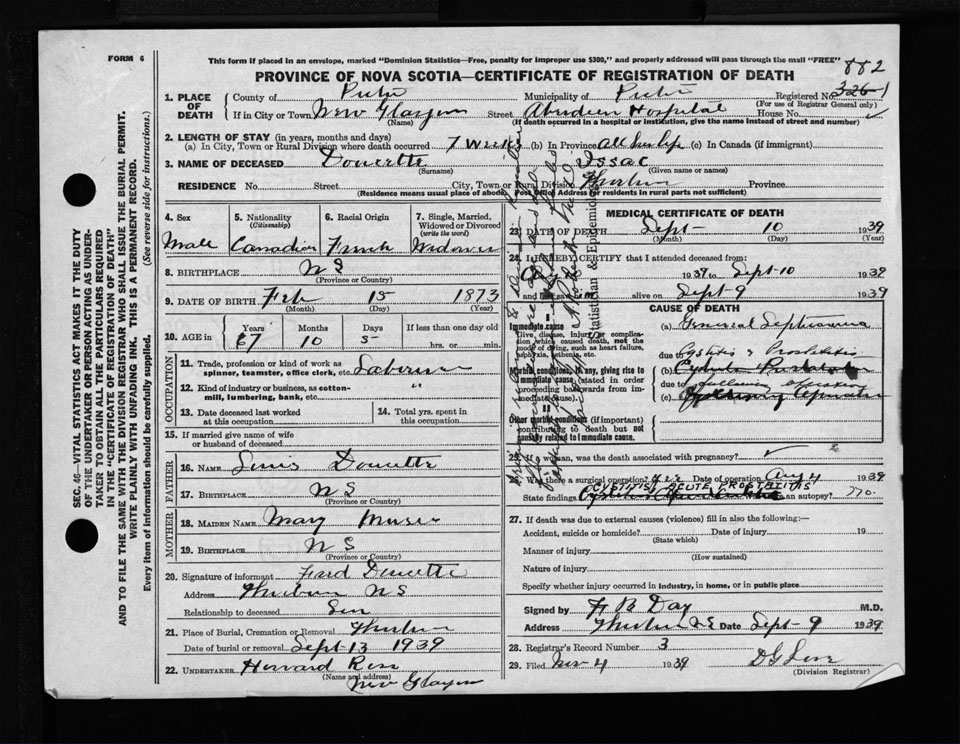 FORM 6
This form if placed in an envelope, marked "Dominion Statistics—Free, penalty for improper use $300," and properly addressed will pass through the mail "FREE"
PROVINCE OF NOVA SCOTIA—CERTIFICATE OF REGISTRATION OF DEATH
882
1. PLACE OF DEATH
County of Pictou Municipality of Pictou Registered No.
(For use of Registrar General only)
If in City or Town New Glasgow Street Aberdeen Hospital House No.
(Name) (If death occurred in a hospital or institution, give the name instead of street and number)
2. LENGTH OF STAY (in years, months and days)
(a) In City, Town or Rural Division where death occurred 7 Weeks (b) In Province All his life (c) In Canada (if immigrant)
3. NAME OF DECEASED Doucette Issac
(Surname) (Given name or names)
RESIDENCE No. Street City, Town or Rural Division Thorburn Province
(Residence means usual place of abode, Post Office Address for residents in rural parts not sufficient)
4. Sex Male
5. Nationality (Citizenship) Canadian
6. Racial Origin French
7. Single, Married, Widowed or Divorced (write the word) Widower
8. BIRTHPLACE N S
(Province or Country)
9. DATE OF BIRTH Feb 15 1873
(Month) (Day) (Year)
10. AGE in Years Months Days If less than one day old
67 10 5 hrs. or min.
OCCUPATION
11. Trade, profession or kind of work as spinner, teamster, office clerk, etc. Laborer
12. Kind of industry or business, as cotton-mill, lumbering, bank, etc. "
13. Date deceased last worked at this occupation
14. Total yrs. spent in this occupation
15. If married give name of wife or husband of deceased
FATHER
16. NAME Doucette
17. BIRTHPLACE N S
(Province or Country)
MOTHER
18. MAIDEN NAME Mary
19. BIRTHPLACE N S
(Province or Country)
20. Signature of informant Doucette
Address Thorburn N S
Relationship to deceased Son
21. Place of Burial, Cremation or Removal Thorburn
Date of burial or removal Sept 13 1939
22. UNDERTAKER Howard Ross
(Name and address)
New Glasgow
MEDICAL CERTIFICATE OF DEATH
23. DATE OF DEATH Sept- 10 1939
(Month) (Day) (Year)
24. I HEREBY CERTIFY that I attended deceased from:
1939 to Sept-10 1939
and last saw alive on Sept-9 1939
CAUSE OF DEATH
Immediate cause
Give disease, injury or complication which caused death, not the mode of dying, such as heart failure, asphyxia, asthenia, etc.
(a) General Septicaemia
due to Cystitis & Prostatitis
Morbid conditions, if any, giving rise to immediate cause (stated in order proceeding backwards from immediate cause).
(b)
due to following operation
(c)
Other morbid conditions (if important) contributing to death but not causally related to immediate cause.
Statistician & Epidemiologist
25. If a woman, was the death associated with pregnancy?
26. Was there a surgical operation? Yes Date of operation Aug 4 1939
CYSTITIS ACUTE PROSTATITIS
State findings Was there an autopsy? no.
27. If death was due to external causes (violence) fill in also the following:—
Accident, suicide or homicide? Date of injury 19
(State which)
Manner of injury
(How sustained)
Nature of injury
Specify whether injury occurred in industry, in home, or in public place
Signed by B Day M.D.
Address Thorburn N.S Date Sept-9 1939
28. Registrar's Record Number 3
29. Filed Nov 4 1939
(Division Registrar)
SEC. 46—VITAL STATISTICS ACT MAKES IT THE DUTY
OF THE UNDERTAKER OR PERSON ACTING AS UNDERTAKER TO OBTAIN ALL THE PARTICULARS REQUIRED
IN THE "CERTIFICATE OF REGISTRATION OF DEATH"
AND TO FILE THE SAME WITH THE DIVISION REGISTRAR WHO SHALL ISSUE THE BURIAL PERMIT.
WRITE PLAINLY WITH UNFADING INK. THIS IS A PERMANENT RECORD.
Every item of information should be carefully supplied. (See reverse side for instructions.)